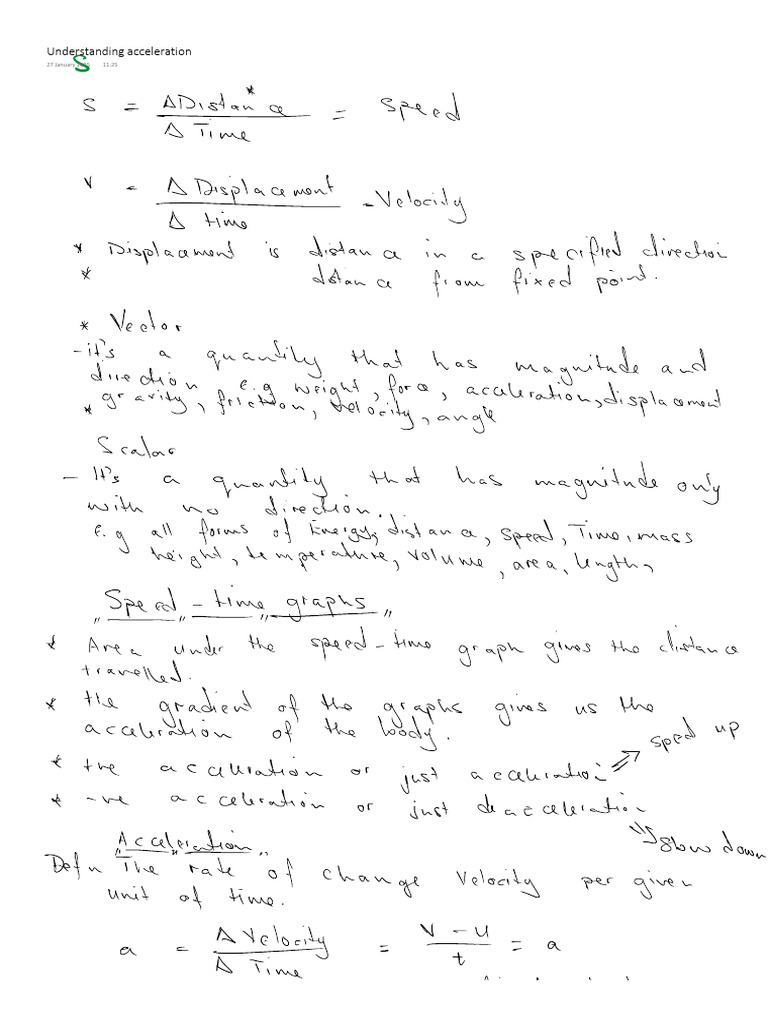 Understanding acceleration
27 January 11:25
S
S = ΔDistance* / Δ Time = speed
V = Δ Displacement / Δ time = Velocity
* Displacement is distance in a specified direction
* distance from fixed point.
* Vector
- it's a quantity that has magnitude and
direction e.g weight, force, acceleration, displacement
* gravity, friction, velocity, angle
Scalar
- It's a quantity that has magnitude only
with no direction.
E.g all forms of Energy, distance, speed, Time, mass
height, temperature, volume, area, length,
"Speed - time graphs"
* Area under the speed - time graph gives the distance
travelled.
* the gradient of the graphs gives us the
acceleration of the body.
* +ve acceleration or just acceleration ⇒ speed up
* -ve acceleration or just deacceleration ⇒ slow down
"Acceleration"
Defn The rate of change velocity per given
unit of time.
a = Δ Velocity / Δ Time = V - U / t = a